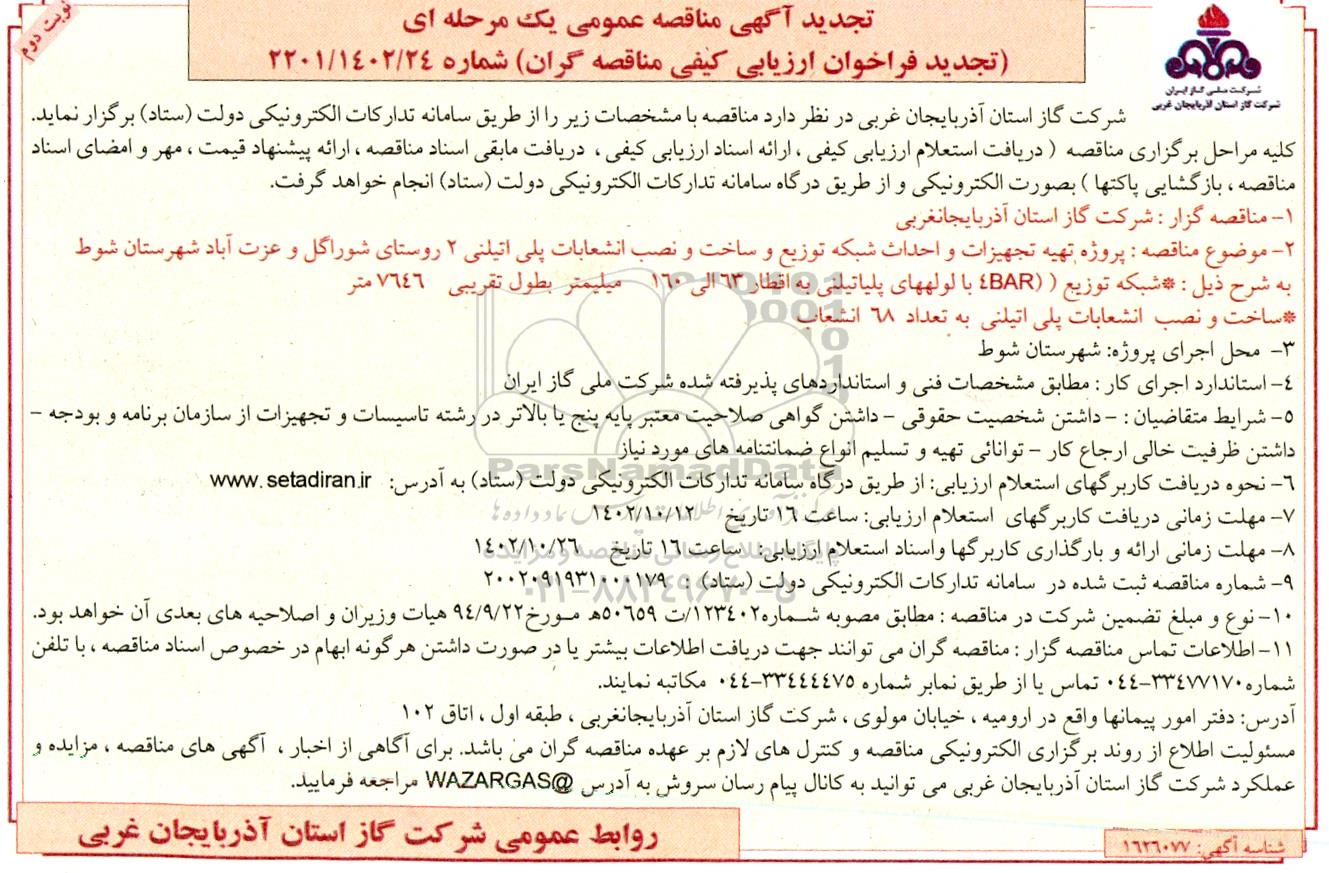 نوبت دوم
تجدید آگهی مناقصه عمومی یک مرحله ای
(تجدید فراخوان ارزیابی کیفی مناقصه گران) شماره ۲۲۰۱/۱۴۰۲/۲۴
شرکت ملی گاز ایران
شرکت گاز استان آذربایجان غربی
شرکت گاز استان آذربایجان غربی در نظر دارد مناقصه با مشخصات زیر را از طریق سامانه تدارکات الکترونیکی دولت (ستاد) برگزار نماید.
کلیه مراحل برگزاری مناقصه ( دریافت استعلام ارزیابی کیفی ، ارائه اسناد ارزیابی کیفی ، دریافت مابقی اسناد مناقصه ، ارائه پیشنهاد قیمت ، مهر و امضای اسناد
مناقصه ، بازگشایی پاکتها ) بصورت الکترونیکی و از طریق درگاه سامانه تدارکات الکترونیکی دولت (ستاد) انجام خواهد گرفت.
۱- مناقصه گزار : شرکت گاز استان آذربایجانغربی
۲- موضوع مناقصه : پروژه تهیه تجهیزات و احداث شبکه توزیع و ساخت و نصب انشعابات پلی اتیلنی ۲ روستای شوراگل و عزت آباد شهرستان شوط
به شرح ذیل : *شبکه توزیع ( (۴BAR با لولههای پلیاتیلنی به اقطار ۶۳ الی ۱۶۰ میلیمتر بطول تقریبی ۷۶۴۶ متر
*ساخت و نصب انشعابات پلی اتیلنی به تعداد ۶۸ انشعاب
۳- محل اجرای پروژه: شهرستان شوط
۴- استاندارد اجرای کار : مطابق مشخصات فنی و استانداردهای پذیرفته شده شرکت ملی گاز ایران
۵- شرایط متقاضیان : - داشتن شخصیت حقوقی - داشتن گواهی صلاحیت معتبر پایه پنج یا بالاتر در رشته تاسیسات و تجهیزات از سازمان برنامه و بودجه -
داشتن ظرفیت خالی ارجاع کار - توانائی تهیه و تسلیم انواع ضمانتنامه های مورد نیاز
۶- نحوه دریافت کاربرگهای استعلام ارزیابی: از طریق درگاه سامانه تدارکات الکترونیکی دولت (ستاد) به آدرس: www.setadiran.ir
۷- مهلت زمانی دریافت کاربرگهای استعلام ارزیابی: ساعت ۱۶ تاریخ ۱۴۰۲/۱۰/۱۲
۸- مهلت زمانی ارائه و بارگذاری کاربرگها واسناد استعلام ارزیابی: ساعت ۱۶ تاریخ ۱۴۰۲/۱۰/۲۶
۹- شماره مناقصه ثبت شده در سامانه تدارکات الکترونیکی دولت (ستاد) : ۲۰۰۲۰۹۱۹۳۱۰۰۰۱۷۹
۱۰- نوع و مبلغ تضمین شرکت در مناقصه : مطابق مصوبه شماره۱۲۳۴۰۲/ت ۵۰۶۵۹ه مورخ۹۴/۹/۲۲ هیات وزیران و اصلاحیه های بعدی آن خواهد بود.
۱۱- اطلاعات تماس مناقصه گزار : مناقصه گران می توانند جهت دریافت اطلاعات بیشتر یا در صورت داشتن هرگونه ابهام در خصوص اسناد مناقصه ، با تلفن
شماره۳۳۴۷۷۱۷۰-۰۴۴ تماس یا از طریق نمابر شماره ۳۳۴۴۴۴۷۵-۰۴۴ مکاتبه نمایند.
آدرس: دفتر امور پیمانها واقع در ارومیه ، خیابان مولوی ، شرکت گاز استان آذربایجانغربی ، طبقه اول ، اتاق ۱۰۲
مسئولیت اطلاع از روند برگزاری الکترونیکی مناقصه و کنترل های لازم بر عهده مناقصه گران می باشد. برای آگاهی از اخبار ، آگهی های مناقصه ، مزایده و
عملکرد شرکت گاز استان آذربایجان غربی می توانید به کانال پیام رسان سروش به آدرس @WAZARGAS مراجعه فرمایید.
روابط عمومی شرکت گاز استان آذربایجان غربی
شناسه آگهی: ۱۶۲۶۰۷۷
ParsNamadData
پایگاه اطلاع رسانی مناقصه و مزایده
۰۲۱-۸۸۳۴۹۶۷۰-۵